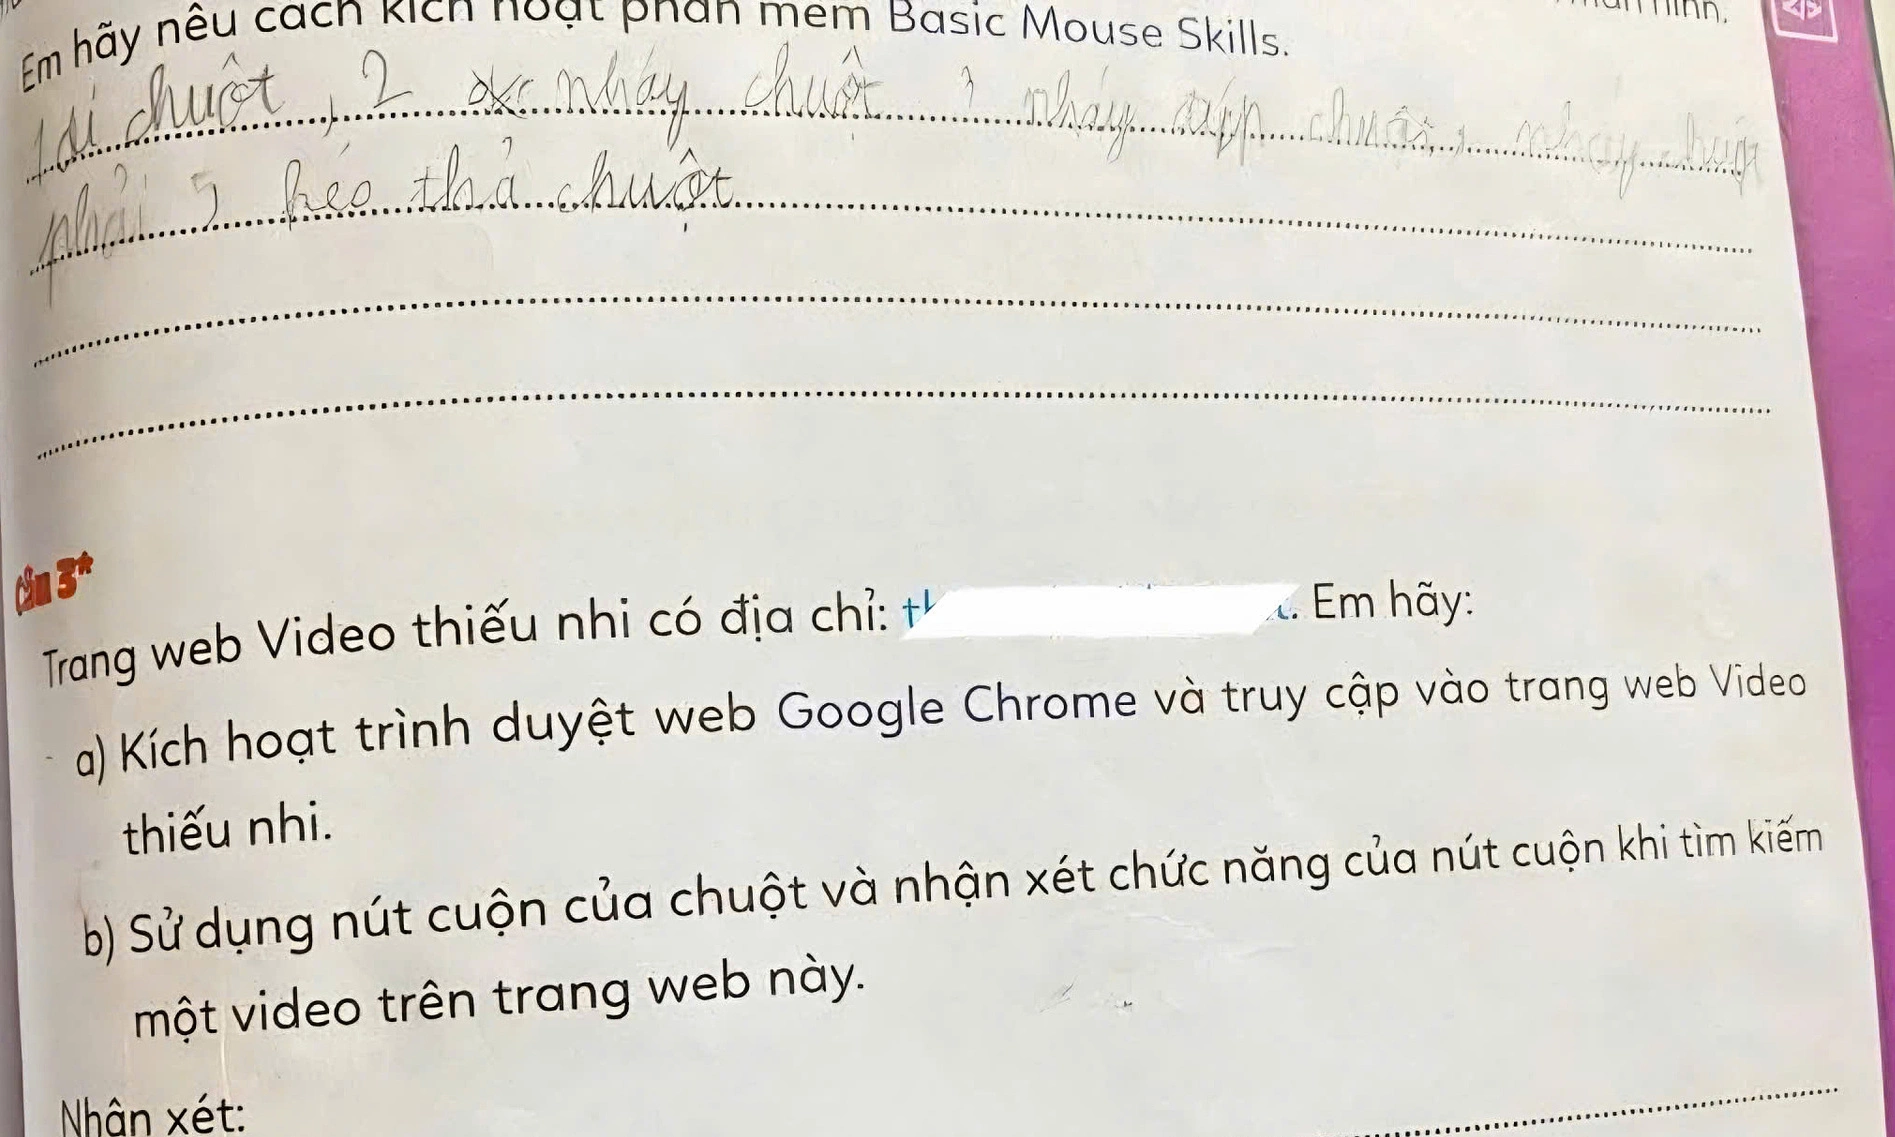 Em hãy nêu cách kích hoạt phần mềm Basic Mouse Skills.
1 di chuột, 2 nháy chuột 3 nháy đúp chuột, nháy chuột
phải 5 kéo thả chuột
Câu 3*
Trang web Video thiếu nhi có địa chỉ: Em hãy:
a) Kích hoạt trình duyệt web Google Chrome và truy cập vào trang web Video
thiếu nhi.
b) Sử dụng nút cuộn của chuột và nhận xét chức năng của nút cuộn khi tìm kiếm
một video trên trang web này.
Nhận xét: